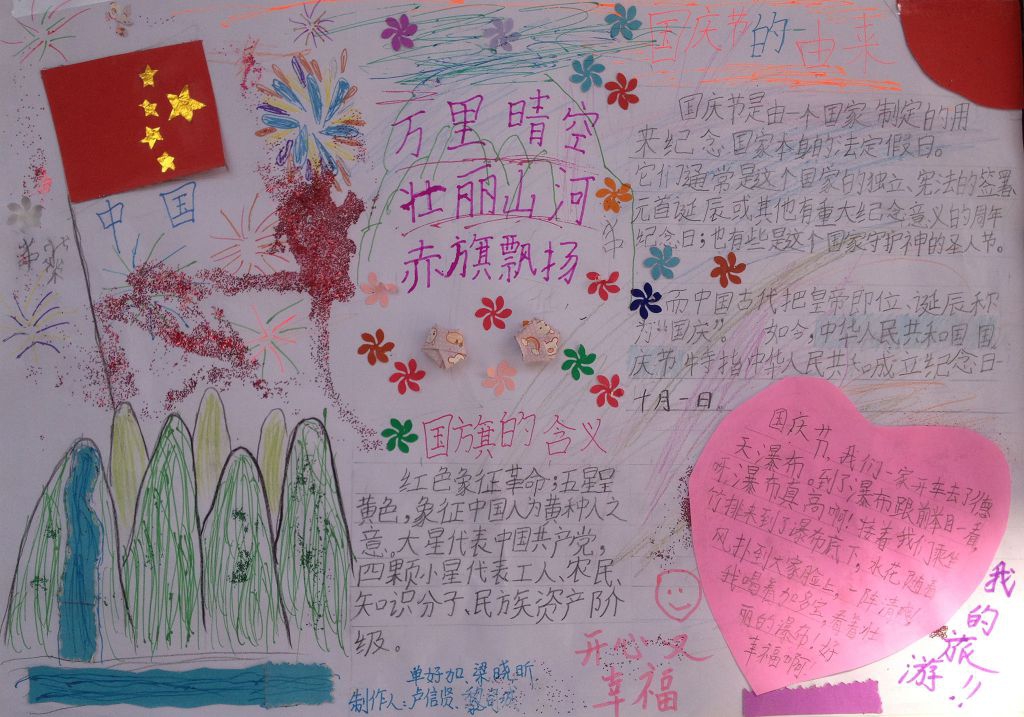 中国
万里晴空
壮丽山河
赤旗飘扬
国庆节的由来
国庆节是由一个国家制定的用
来纪念国家本身的法定假日。
它们通常是这个国家的独立、宪法的签署
元首诞辰或其他有重大纪念意义的周年
纪念日;也有些是这个国家守护神的圣人节。
而中国古代把皇帝即位、诞辰称
为“国庆”。如今,中华人民共和国国
庆节特指中华人民共和成立纪念日
十月一日。
国旗的含义
红色象征革命;五星呈
黄色,象征中国人为黄种人之
意。大星代表中国共产党,
四颗小星代表工人、农民、
知识分子、民族资产阶
级。
国庆节,我们一家开车去了德
天瀑布。到了瀑布跟前抬目一看,
呀,瀑布真高啊!接着我们乘坐
竹排来到了瀑布底下,水花随着
风扑到大家脸上,一阵清爽!
我喝着加多宝,看着壮
丽的瀑布!好
幸福啊!
我的旅游!!
开心又
幸福
单好加 梁晓昕
制作人:卢信贤